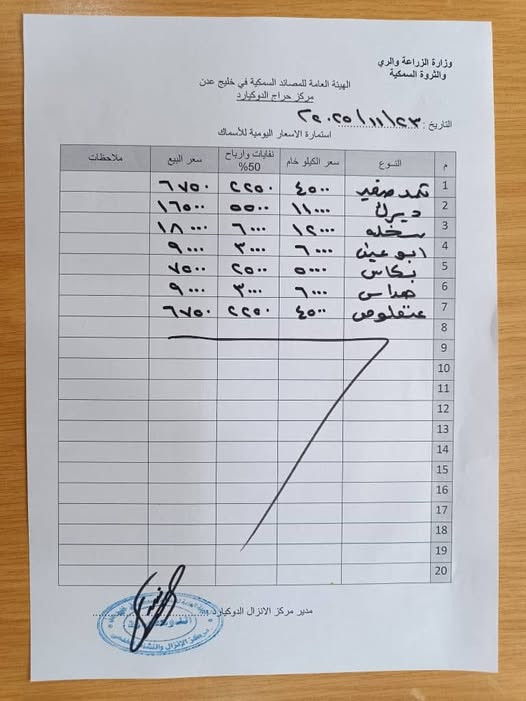 وزارة الزراعة والري
والثروة السمكية
الهيئة العامة للمصائد السمكية في خليج عدن
مركز حراج الدوكيارد
التاريخ : ٢٣/١١/٢٠٢٥
استمارة الاسعار اليومية للأسماك
م النوع سعر الكيلو خام نفايات وارباح 50% سعر البيع ملاحظات
1 ثمد صغير ٤٥٠٠ ٢٢٥٠ ٦٧٥٠
2 ديرك ١١٠٠٠ ٥٥٠٠ ١٦٥٠٠
3 سخله ١٢٠٠٠ ٦٠٠٠ ١٨٠٠٠
4 ابو عين ٦٠٠٠ ٣٠٠٠ ٩٠٠٠
5 بكاس ٥٠٠٠ ٢٥٠٠ ٧٥٠٠
6 هداس ٦٠٠٠ ٣٠٠٠ ٩٠٠٠
7 عنفلوص ٤٥٠٠ ٢٢٥٠ ٦٧٥٠
8
9
10
11
12
13
14
15
16
17
18
19
20
مدير مركز الانزال الدوكيارد :